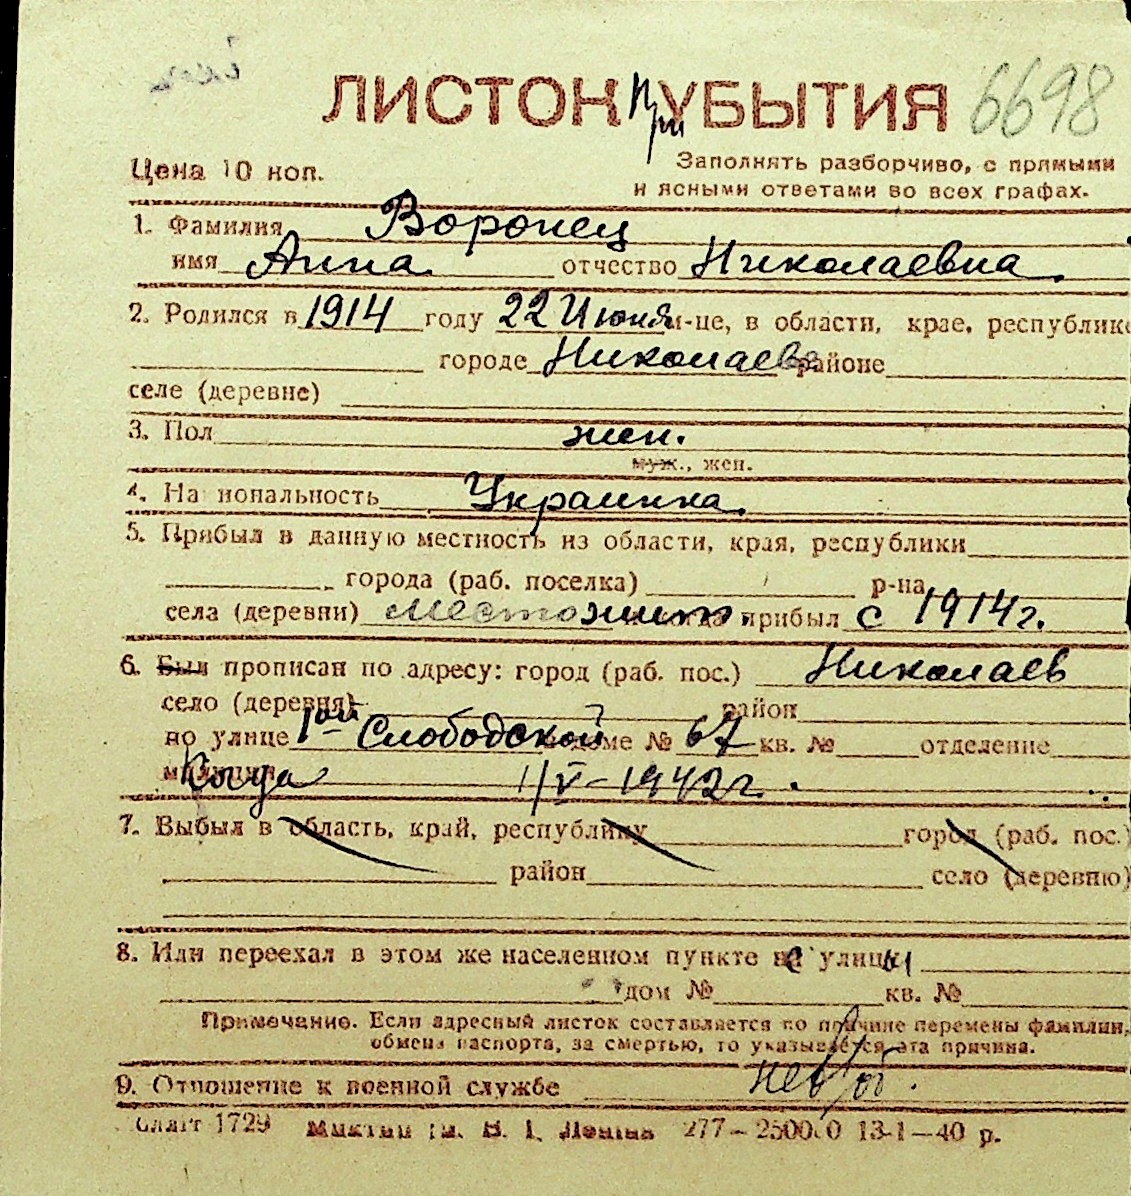 ЛИСТОК при УБЫТИЯ 6698
Цена 10 коп.
Заполнять разборчиво, с прямыми
и ясными ответами во всех графах.
1. Фамилия Воронец
имя Анна отчество Николаевна
2. Родился в 1914 году 22 Июня м-це, в области, крае, республике
городе Николаеве районе
селе (деревне)
3. Пол жен.
муж., жен.
4. Национальность Украинка.
5. Прибыл в данную местность из области, края, республики
города (раб. поселка) р-на
села (деревни) местожит. когда прибыл с 1914 г.
6. Был прописан по адресу: город (раб. пос.) Николаев
село (деревня) район
по улице 1ой Слободской в доме № 67 кв. № отделение
милиции Когда 1/V-1942 г.
7. Выбыл в область, край, республику город (раб. пос.)
район село (деревню)
8. Или переехал в этом же населенном пункте с улицы
дом № кв. №
Примечание. Если адресный листок составляется по причине перемены фамилии,
обмена паспорта, за смертью, то указывается эта причина.
9. Отношение к военной службе нев/об.
1729 им. В. І. Леніна 277—250000 13-1—40 р.